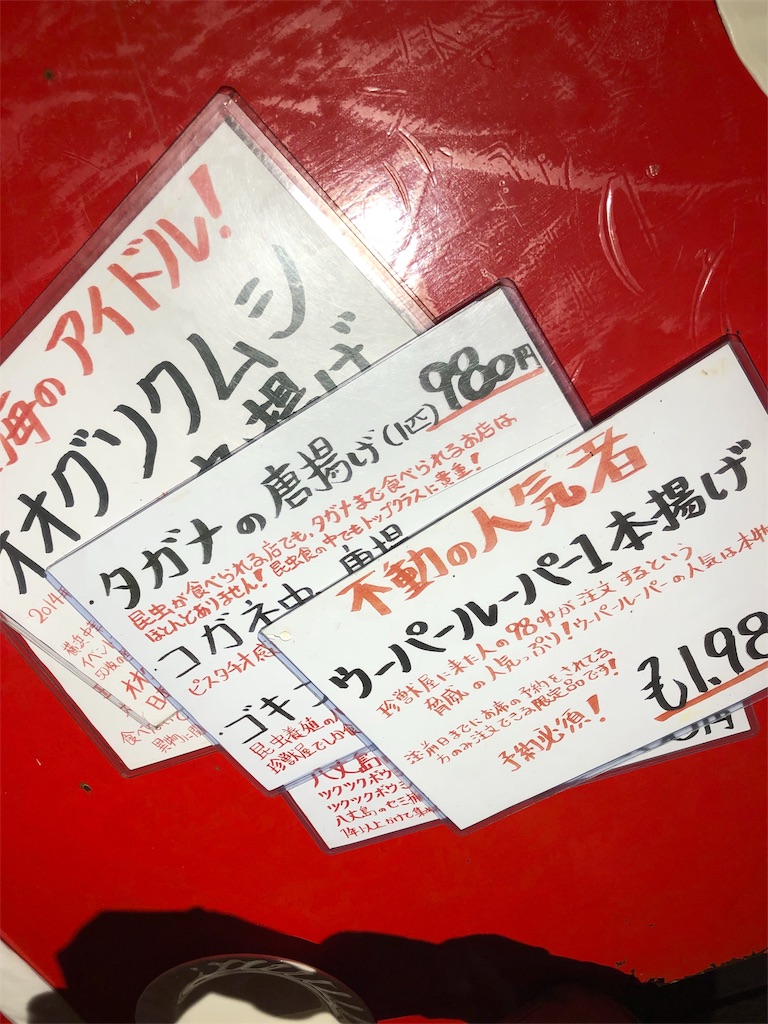 海のアイドル!
オオグソクムシ
揚げ
2014年
横浜中
イベン
50
食べ
タガナの唐揚げ(1匹) 980円
昆虫が食べられる店でも、タガナまで食べられるお店は
ほとんどありません! 昆虫食の中でもトップクラスに貴重!
コガネ虫 唐揚
ピスタチオ感
ゴキブ
昆虫養殖の
珍獣屋でしか食
八丈島
ツクツクボウ
ツクツクボウ
八丈島のセミ
1年以上かけて集
不動の人気者
ウーパールーパー1本揚げ
珍獣屋に来た人の98%が注文するという
脅威の人気っぷり!ウーパールーパーの人気は本物
¥1,98
注前日までにお席の予約をされてる
方のみ注文できる限定品です!
予約必須!